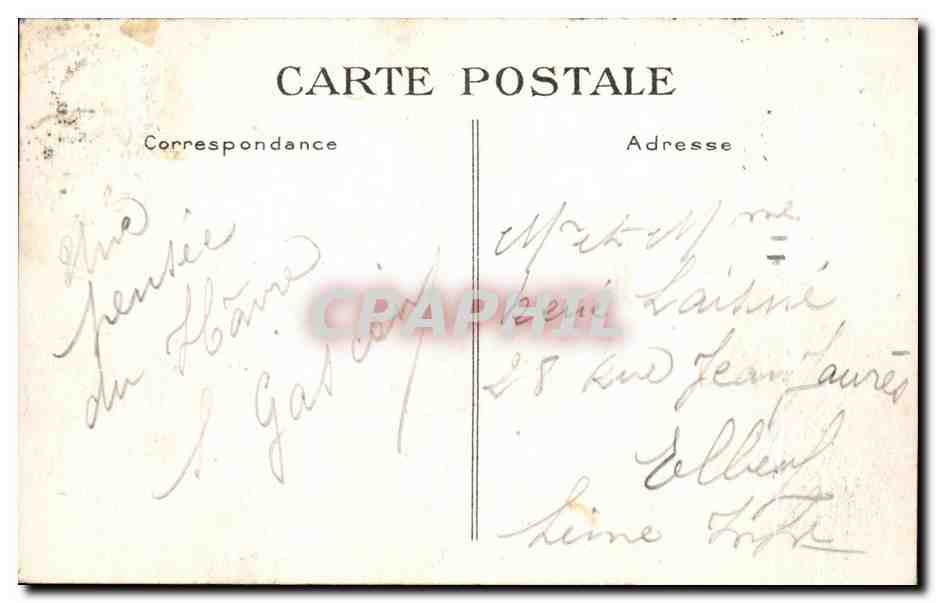 CARTE POSTALE
Correspondance
Une
pensée
du Hâvre
S. Gascoin
Adresse
Mr et Mme
René Laisné
28 Rue Jean Jaurès
Elbeuf
Seine Infre
CPAPHIL